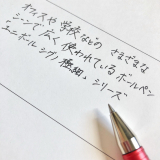 オフィスや学校などの さまざまな
シーンで広く使われているボールペン
「ユニボール シグノ 極細」シリーズ